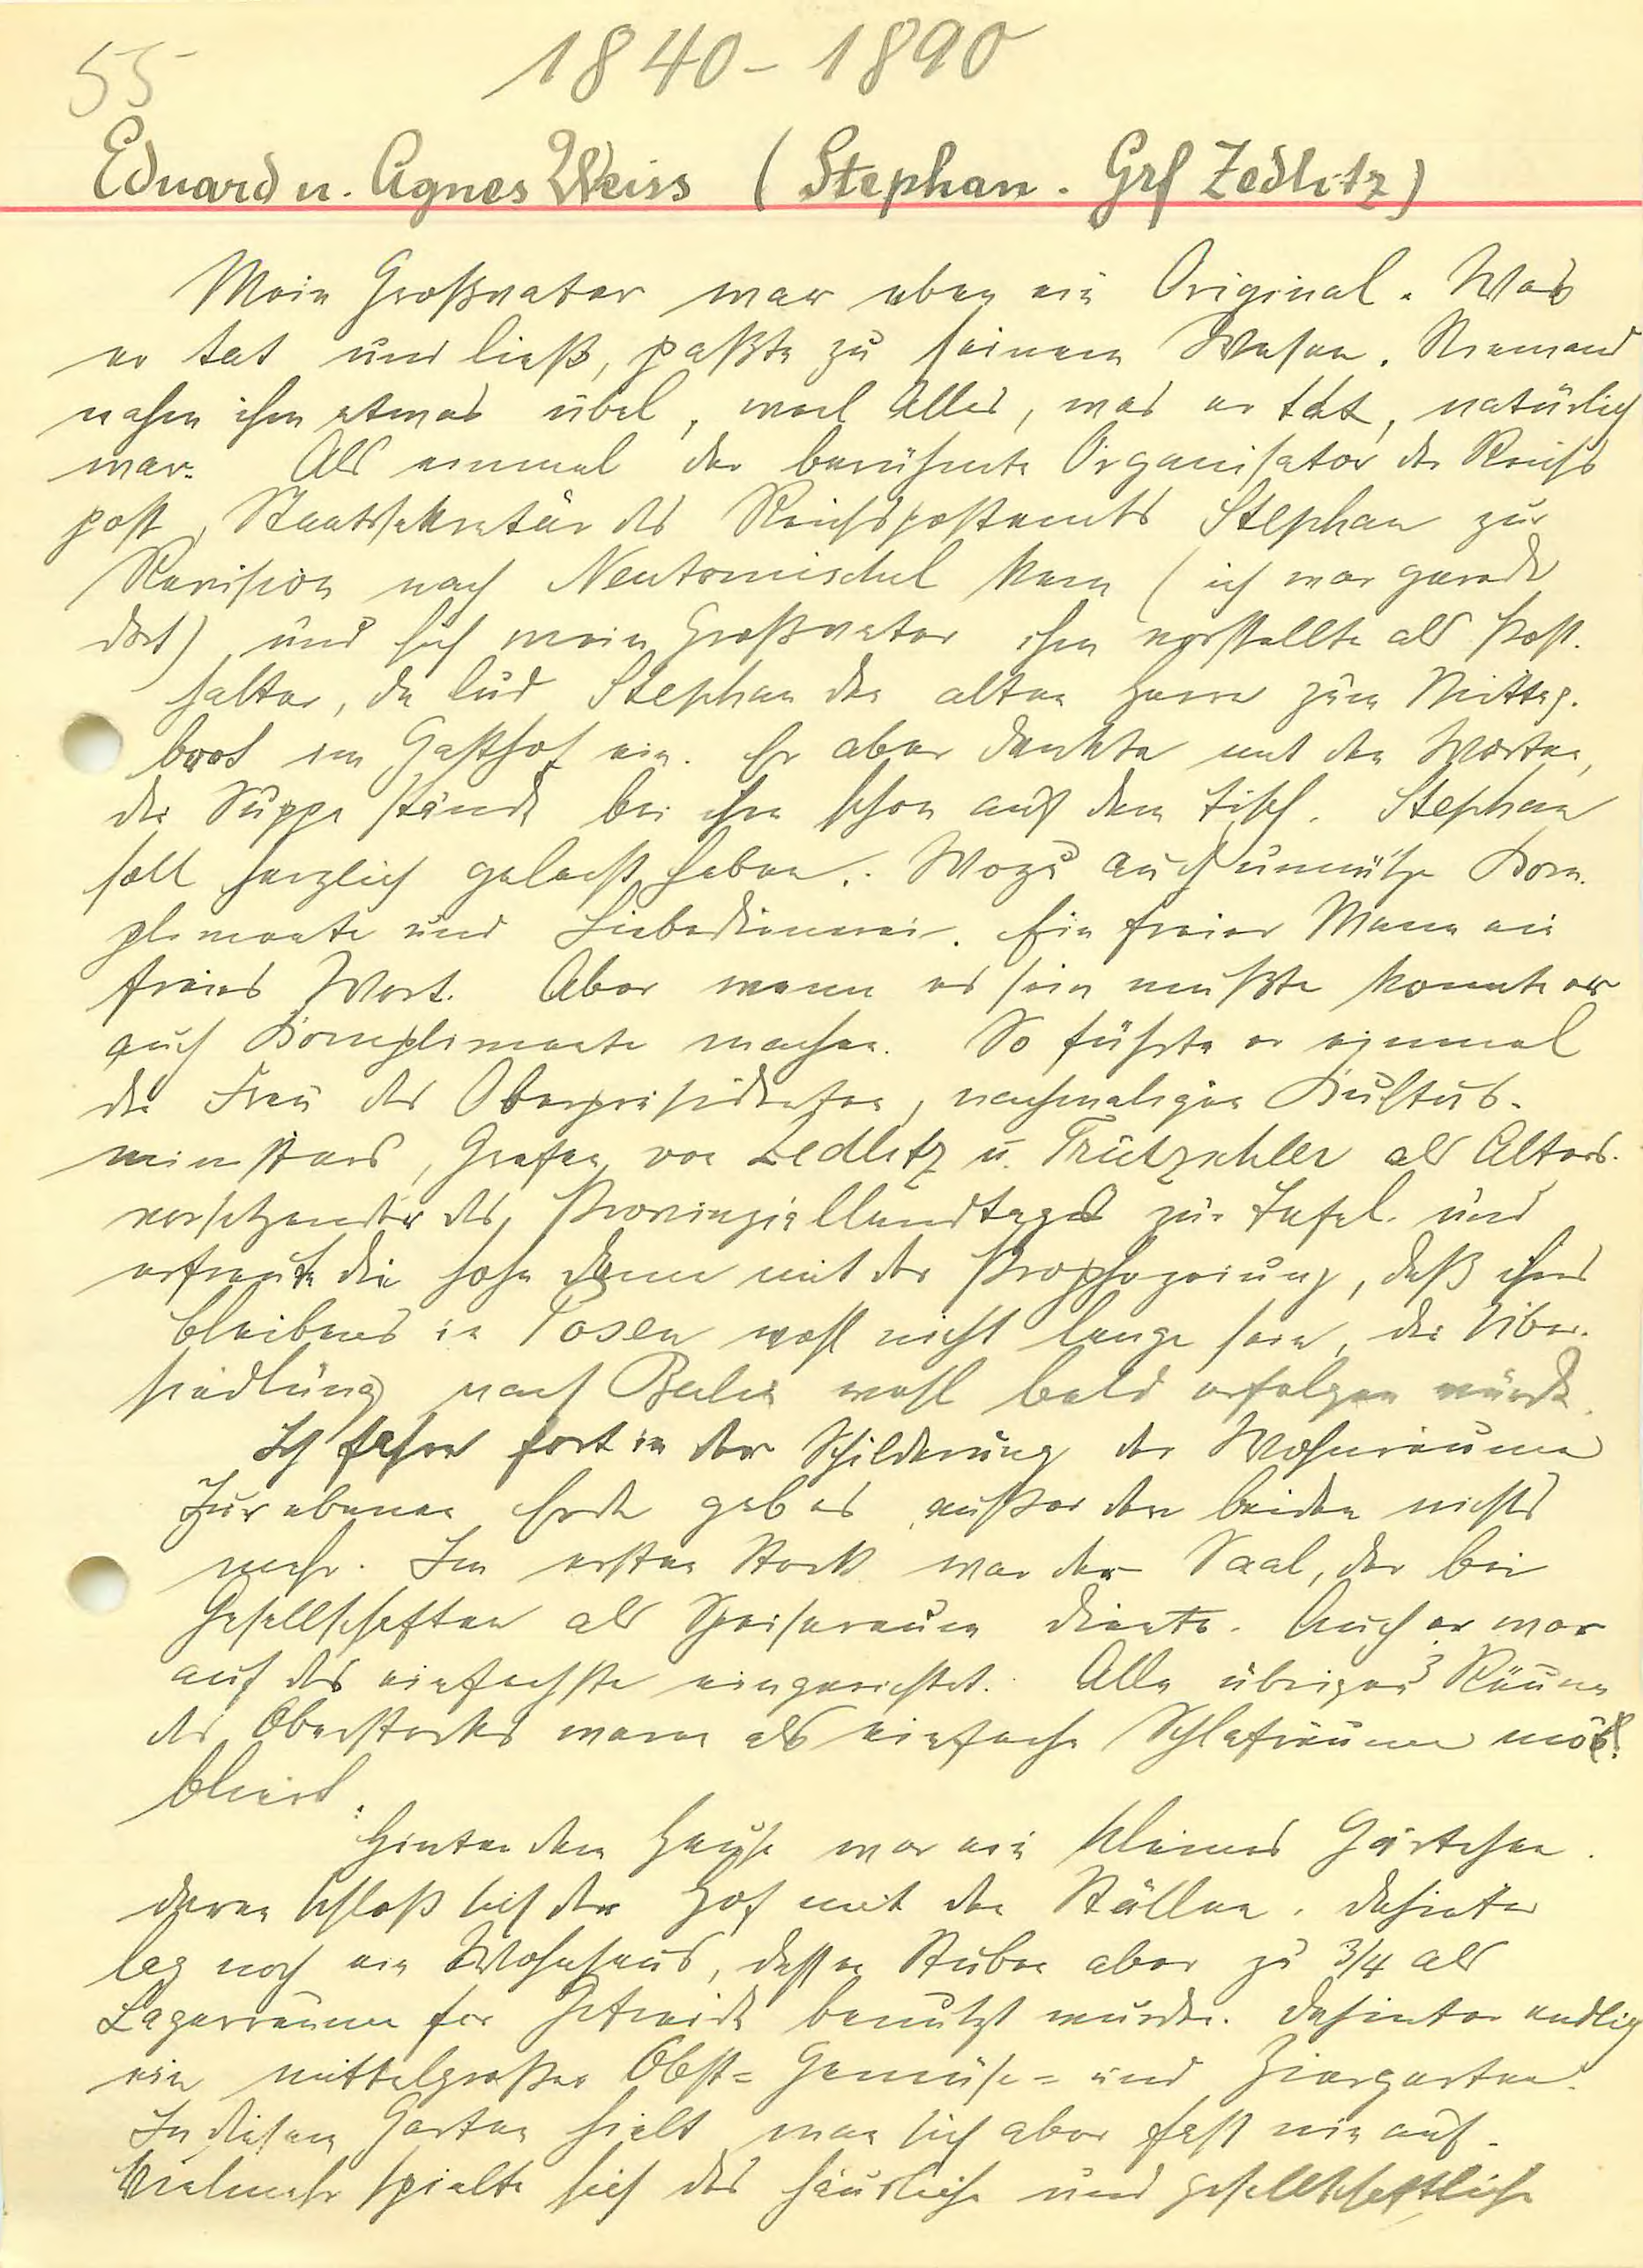 55
1840-1890
Eduard u. Agnes Weiss (Stephan. Grf Zedlitz)
Mein Großvater war eben ein Original. Was
er tat und ließ, paßte zu seinem Wesen. Niemand
nahm ihm etwas übel, weil Alles, was er tat, natürlich
war. Als einmal der berühmte Organisator der Reichs
post, Staatssekretär des Reichspostamts Stephan zur
Revision nach Neutomischel kam (ich war gerade
dort) und sich mein Großvater ihm vorstellte als Post-
halter, da lud Stephan den alten Herrn zum Mittag-
brot im Gasthof ein. Er aber dankte mit den Worten,
die Suppe stände bei ihm schon auf dem Tisch. Stephan
soll herzlich gelacht haben. Wozu auch unnütze Kom-
plimente und Liebedienerei. Ein freier Mann ein
freies Wort. Aber wenn es sein mußte konnte er
auch Komplimente machen. So führte er einmal
die Frau des Oberpräsidenten, nachmaligen Kultus-
ministers, Grafen von Zedlitz u. Trützschler als Alters-
vorsitzender des Provinziallandtages zur Tafel und
erfreute die hohe Dame mit der Prophezeiung, daß ihres
Bleibens in Posen wohl nicht lange sein, die Über-
siedlung nach Berlin wohl bald erfolgen würde.
Ich fahre fort in der Schilderung der Wohnräume
Zur ebenen Erde gab es außer den beiden nichts
mehr. Im ersten Stock war der Saal, der bei
Gesellschaften als Speiseraum diente. Auch er war
auf das einfachste eingerichtet. Alle übrigen 3 Räume
des Oberstocks waren als einfache Schlafräume mö-
bliert.
Hinter dem Hause war ein kleines Gärtchen.
daran schloß sich der Hof mit den Ställen. Dahinter
lag noch ein Wohnhaus, dessen Stuben aber zu 3/4 als
Lagerräume for Getreide benutzt wurden. Dahinter endlich
ein mittelgroßer Obst= Gemüse= und Ziergarten.
In diesem Garten hielt man sich aber fast nie auf.
Vielmehr spielte sich das häusliche und gesellschaftliche